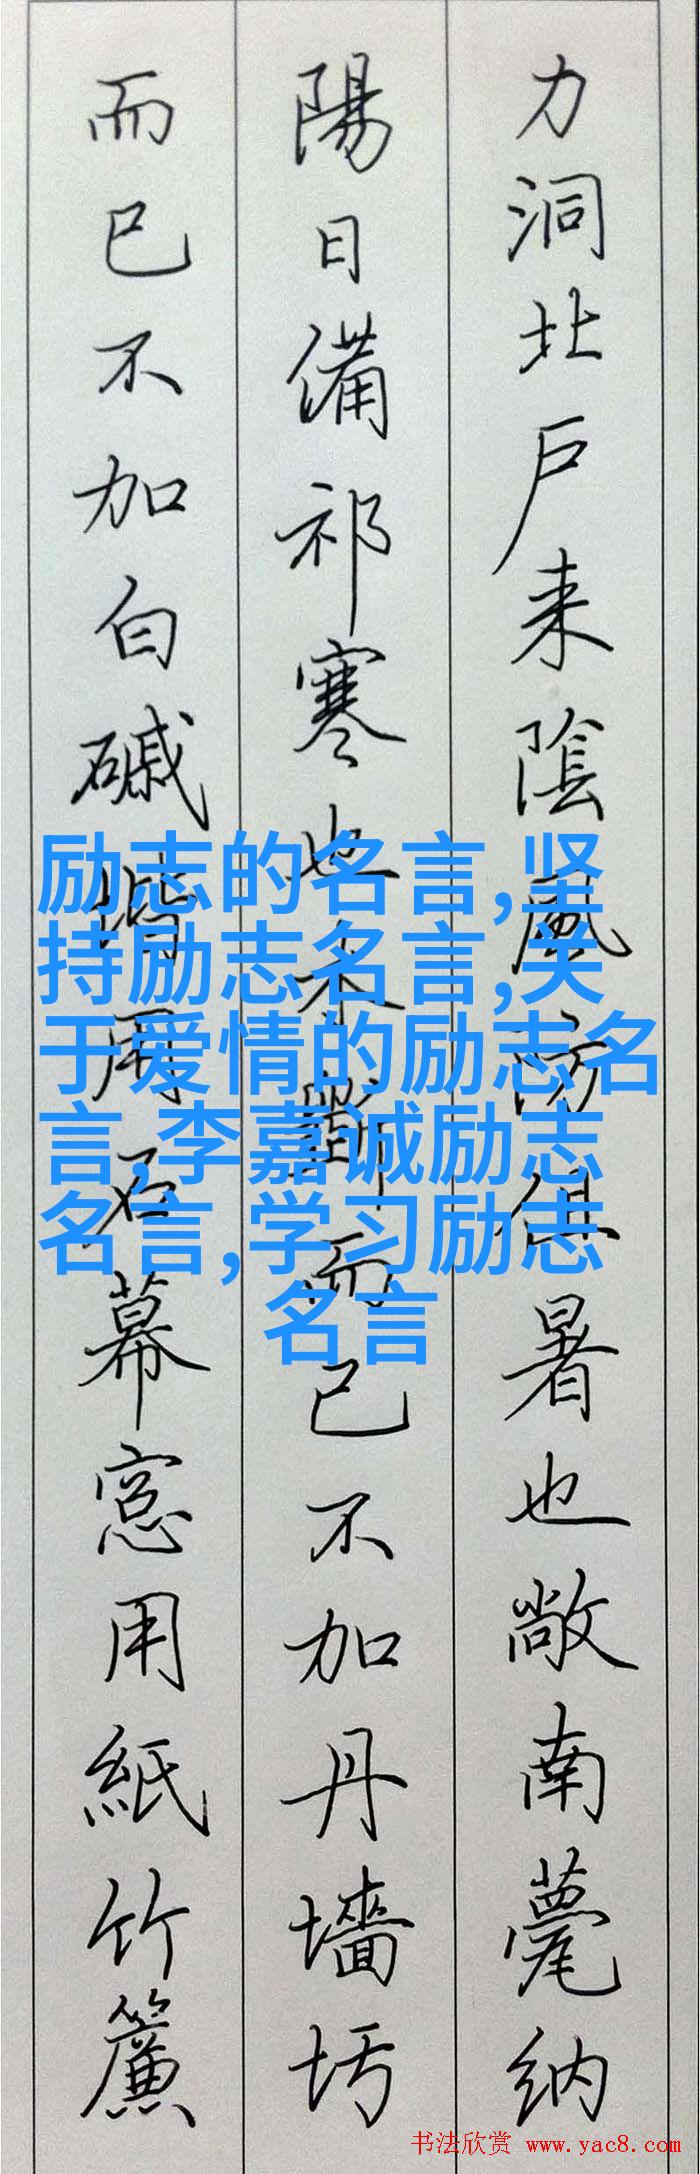 力洞北戶来陰風防徂暑也敞南甍纳
陽日備祁寒也木斲而已不加丹墻圬
而已不加白磩堦用石幕窓用紙竹簾
励志的名言,坚
持励志名言,关
于爱情的励志名
言,李嘉诚励志
名言,学习励志
名言
书法欣赏 www.yac8.com